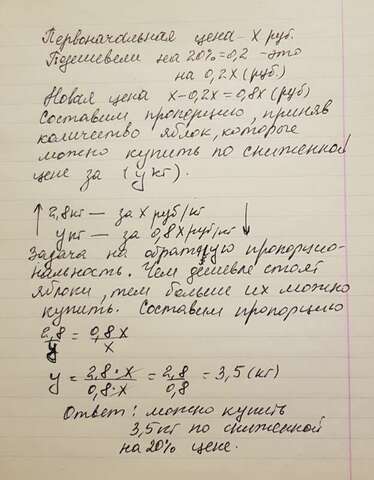 Первоначальная цена - х руб.
Подешевели на 20% = 0,2 - это
на 0,2х (руб.)
Новая цена х-0,2х=0,8х (руб)
Составим пропорцию, приняв
количество яблок, которые
можно купить по сниженной
цене за (у кг).
↑ 2,8 кг — за х руб/кг
у кг — за 0,8х руб/кг ↓
Задача на обратную пропорцио-
нальность. Чем дешевле стоят
яблоки, тем больше их можно
купить. Составим пропорцию
2,8/у = 0,8х/х
у = 2,8·х/0,8·х = 2,8/0,8 = 3,5 (кг)
Ответ: можно купить
3,5 кг по сниженной
на 20% цене.